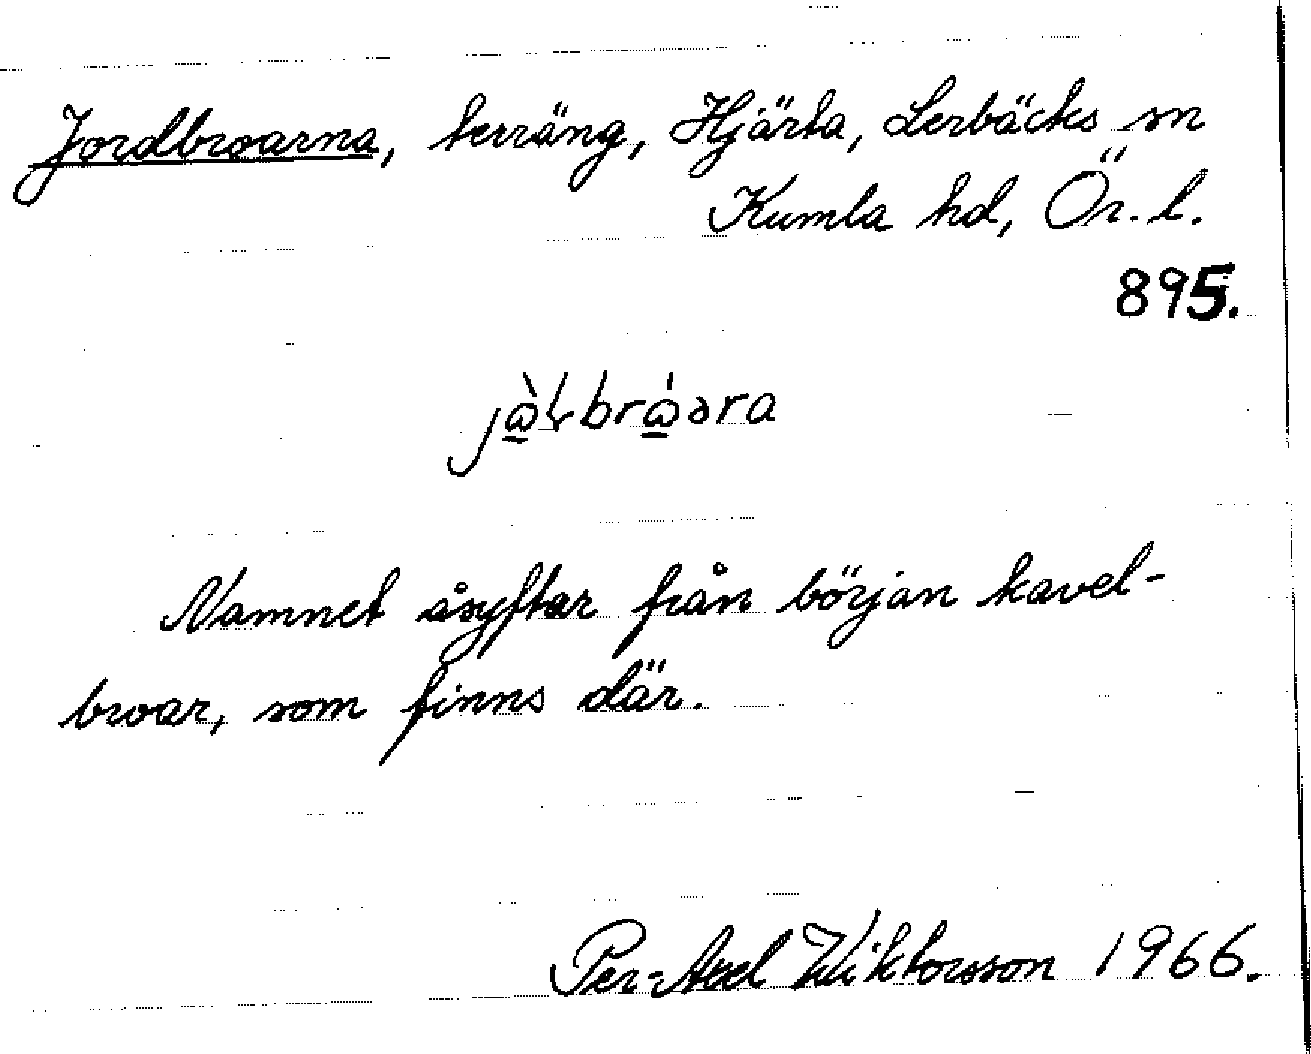 Jordbroarna, terräng, Hjärta, Lerbäcks sn
Kumla hd, Ör. l.
895.
Namnet åsyftar från början kavel-
broar, som finns där.
Per-Axel Wiktorsson 1966.